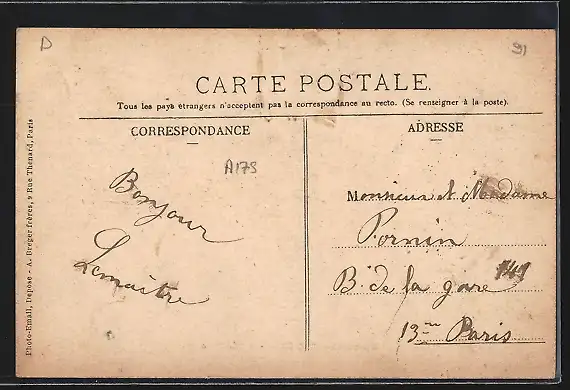 D
91
CARTE POSTALE.
Tous les pays étrangers n'acceptent pas la correspondance au recto. (Se renseigner à la poste).
CORRESPONDANCE
ADRESSE
A173
Bonjour
Lemaître
Monsieur et Madame
Pornin
B. de la gare 141
13me Paris
Photo-Email, Déposé - A. Breger frères, 9 Rue Thénard, Paris